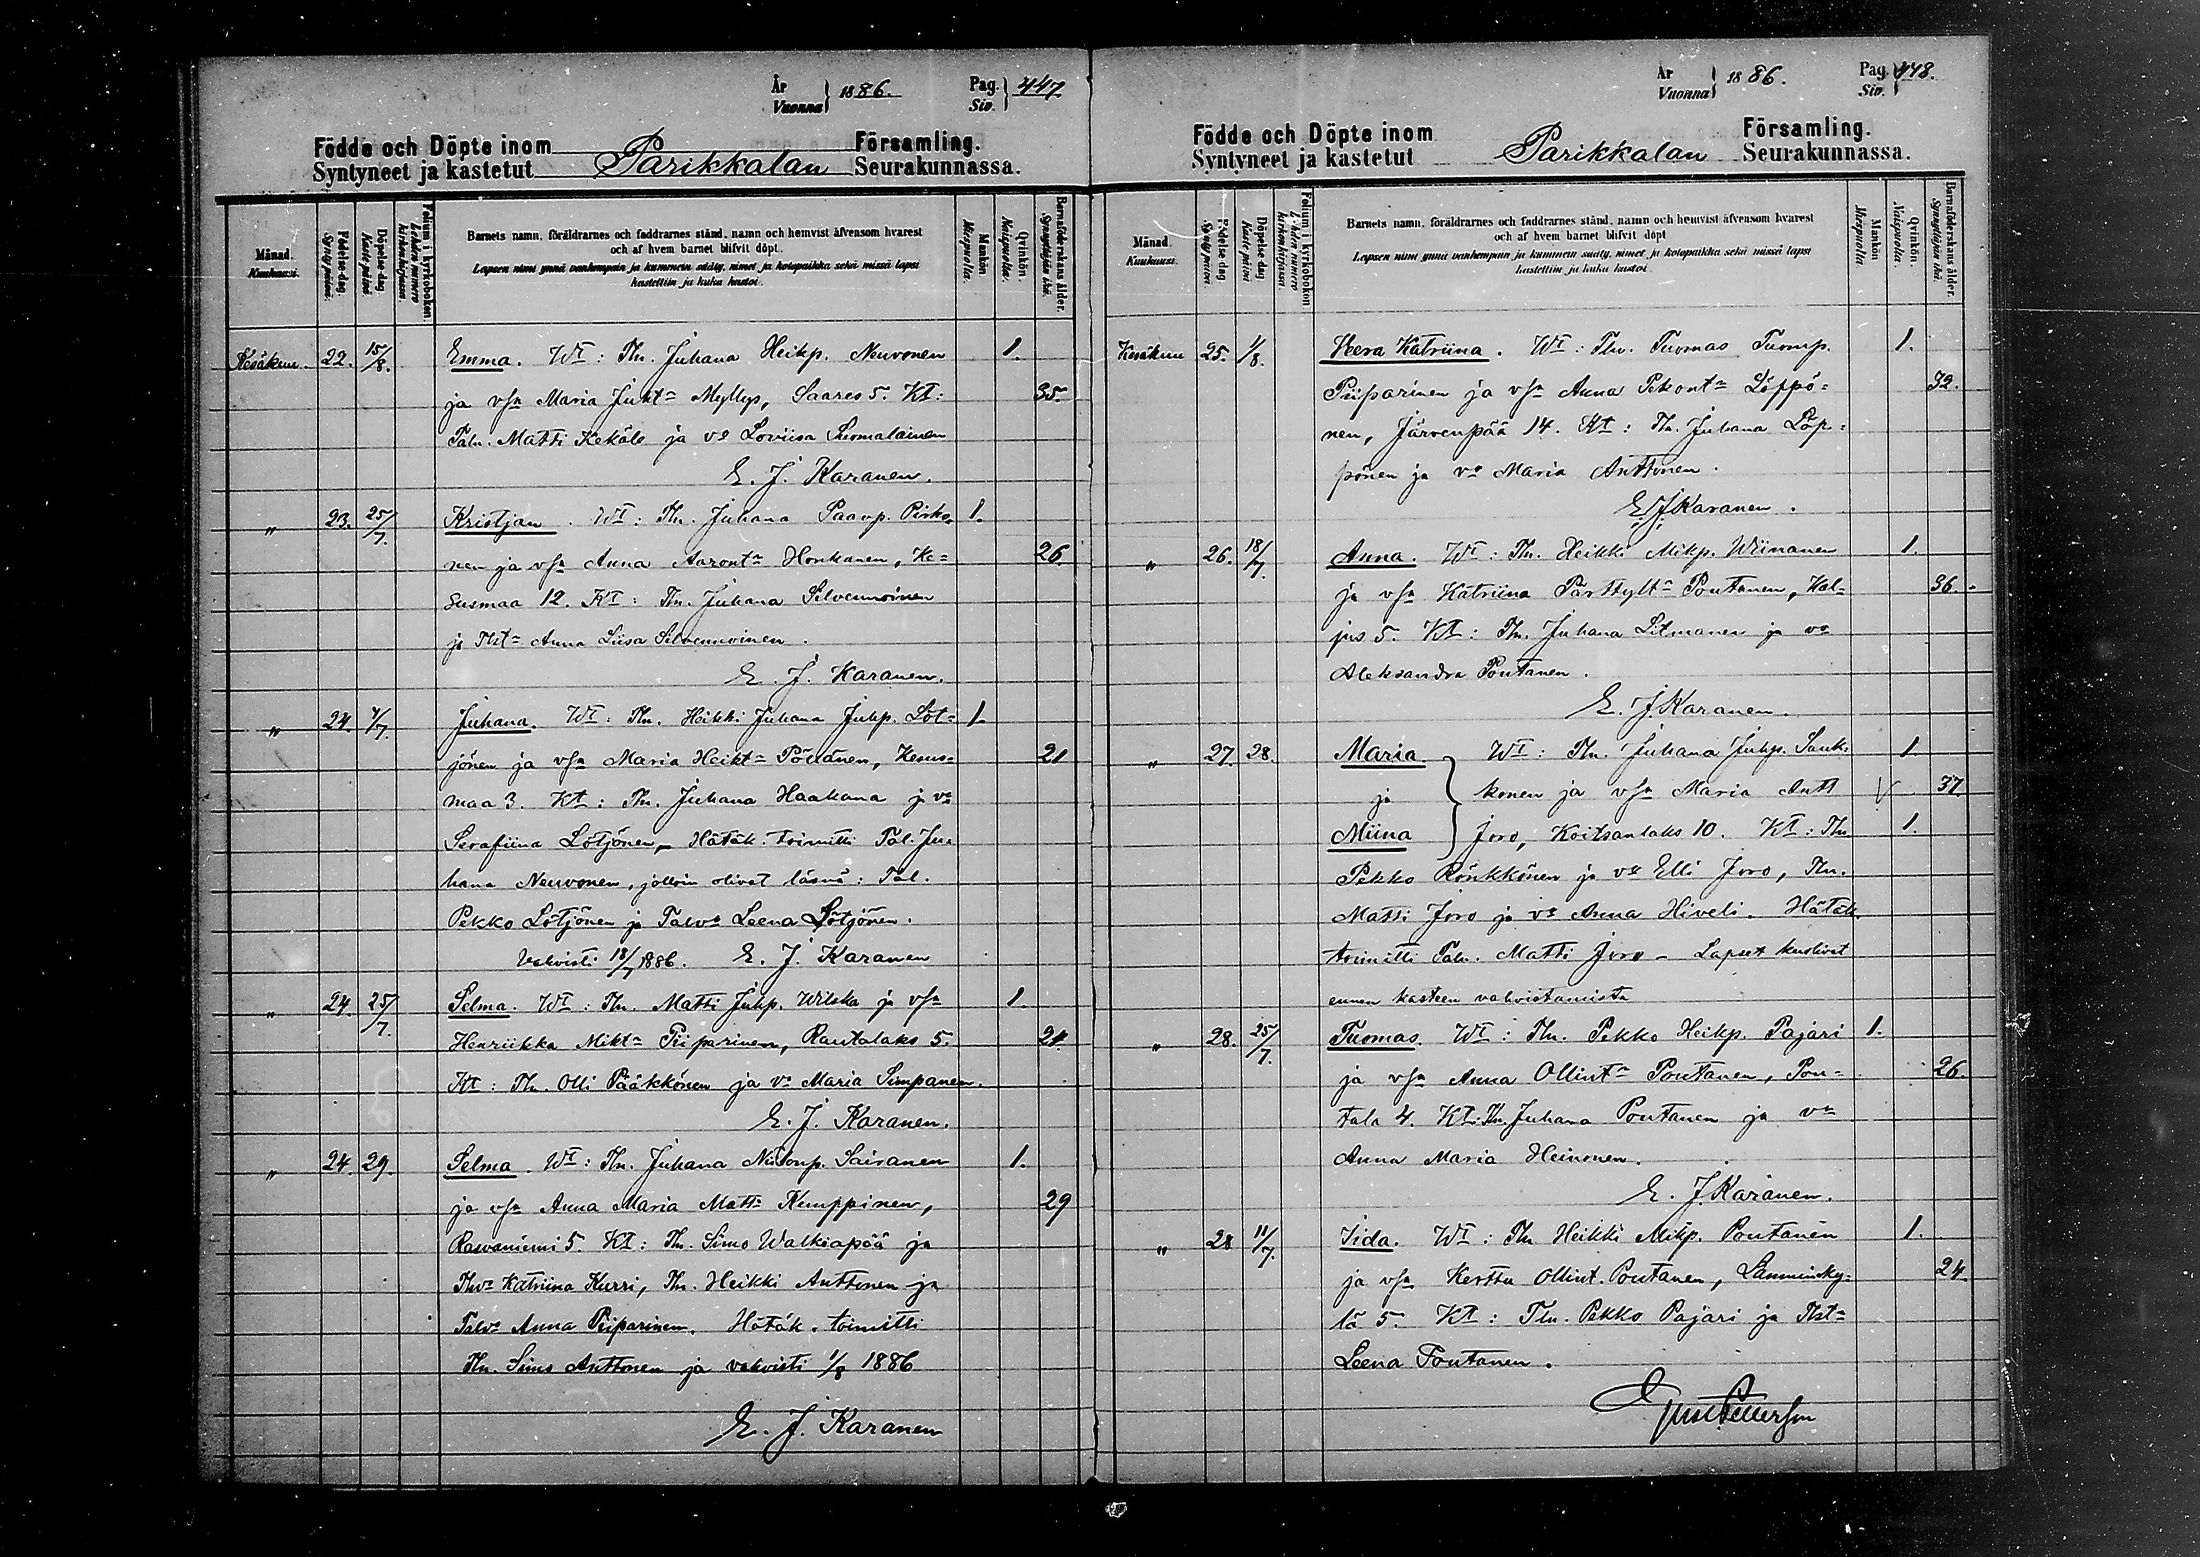 År
Vuonna } 1886. Pag.
Siv. } 447.
Födde och Döpte inom Parikkalan Församling.
Syntyneet ja kastetut Seurakunnassa.
Månad. Kuukausi.
Födelse-dag. Syntypäivä.
Döpelse-dag. Kastepäivä
Folium i kyrkoboken. Lehden numero kirkonkirjassa.
Barnets namn, föräldrarnes och faddrarnes stånd, namn och hemvist äfvensom hvarest
och af hvem barnet blifvit döpt.
Lapsen nimi ynnä vanhempain ja kummein sääty, nimet ja kotopaikka sekä missä lapsi
kastettiin ja kuka kastoi.
Mankön. Miespuolia.
Qvinkön. Naispuolia.
Barnaföderskans ålder. Synnyttäjän ikä.
Kesäkuu. 22. 15/8. Emma. Wt: Tln. Juhana Heikp. Neuvonen 1.
ja vsa Maria Jukt= Myllys, Saares 5. Kt: 35.
Taln. Matti Kekäle ja vo Loviisa Suomalainen
E. J. Karanen.
" 23. 25/7. Kristjan. Wt: Tln. Juhana Paavp. Pirho- 1.
nen ja vsa Anna Aaront= Honkanen, Ke= 26.
susmaa 12. Kt: Tln. Juhana Silvennoinen
ja Tlst= Anna Liisa Silvennoinen.
E. J. Karanen.
" 24. 4/7. Juhana. Wt: Tln. Heikki Juhana Juhp. Löt= 1.
jönen ja vsa Maria Heikt= Pöllänen, Kesus= 21
maa 3. Kt: Tln. Juhana Haakana ja vo
Serafiina Lötjönen, Hätäk. toimitti Tal. Ju=
hana Neuvonen, jolloin olivat läsnä: Tal.
Pekko Lötjönen ja Talvo Leena Lötjönen.
Vahvisti 18/7 1886. E. J. Karanen
" 24. 25/7. Selma. Wt: Tln. Matti Juhp. Wilska ja vsa 1.
Henriikka Mikt= Piiparinen, Rautalaks 5. 21.
Kt: Tln. Olli Pääkkönen ja vo Maria Simpanen.
E. J. Karanen.
" 24. 29. Selma. Wt: Tln. Juhana Niilonp. Sairanen 1.
ja vsa Anna Maria Matt= Kemppinen, 29
Rasvaniemi 5. Kt: Tln. Simo Walkiapää ja
Tlvo Katriina Kurri, Tln. Heikki Anttonen ja
Talvo Anna Piiparinen. Hätäk. toimitti
Tln. Simo Anttonen ja vahvisti 1/8 1886
E. J. Karanen
År
Vuonna } 1886. Pag.
Siv. } 448.
Födde och Döpte inom Parikkalan Församling.
Syntyneet ja kastetut Seurakunnassa.
Månad. Kuukausi.
Födelse-dag. Syntypäivä.
Döpelse-dag. Kastepäivä
Folium i kyrkoboken. Lehden numero kirkonkirjassa.
Barnets namn, föräldrarnes och faddrarnes stånd, namn och hemvist äfvensom hvarest
och af hvem barnet blifvit döpt
Lapsen nimi ynnä vanhempain ja kummein sääty, nimet ja kotopaikka sekä missä lapsi
kastettiin ja kuka kastoi.
Mankön Miespuolia
Qvinkön. Naispuolia.
Barnaföderskans ålder. Synnyttäjän ikä.
Kesäkuu 25. 1/8. Veera Katriina. Wt: Tln. Tuomas Tuomp. 1.
Piiparinen ja vsa Anna Pekont= Löppö= 32.
nen, Järvenpää 14. Kt: Tln. Juhana Löp=
pönen ja vo Maria Anttonen.
E J Karanen.
" 26. 18/7. Anna. Wt: Tln. Heikki Mikp. Wiinanen 1.
ja vsa Katriina Pärttylt= Poutanen, Kal= 36.
jus 5. Kt: Tln. Juhana Litmanen ja vo
Aleksandra Poutanen.
E. J. Karanen.
" 27. 28. Maria Wt: Tln. Juhana Juhp. Sink- 1
ja konen ja vsa Maria Antt V 37.
Miina Joro, Koitsanlaks 10. Kt: Tln 1.
Pekko Rönkkönen ja vo Elli Joro, Tln.
Matti Joro ja vo Anna Hiveli. Hätäk
toimitti Taln. Matti Joro - Lapset kuolivat
ennen kasteen vahvistamista
" 28. 25/7. Tuomas. Wt: Tln. Pekko Heikp. Pajari 1.
ja vsa Anna Ollint= Poutanen, Pou= 26.
tala 4. Kt: Tln. Juhana Poutanen ja vo
Anna Maria Heinonen.
E. J. Karanen.
" 28 11/7. Iida. Wt: Tln Heikki Mikp. Poutanen 1.
ja vsa Kerttu Ollint. Poutanen, Lamminky= 24.
lä 5. Kt: Tln. Pekko Pajari ja Tlst=
Leena Poutanen.